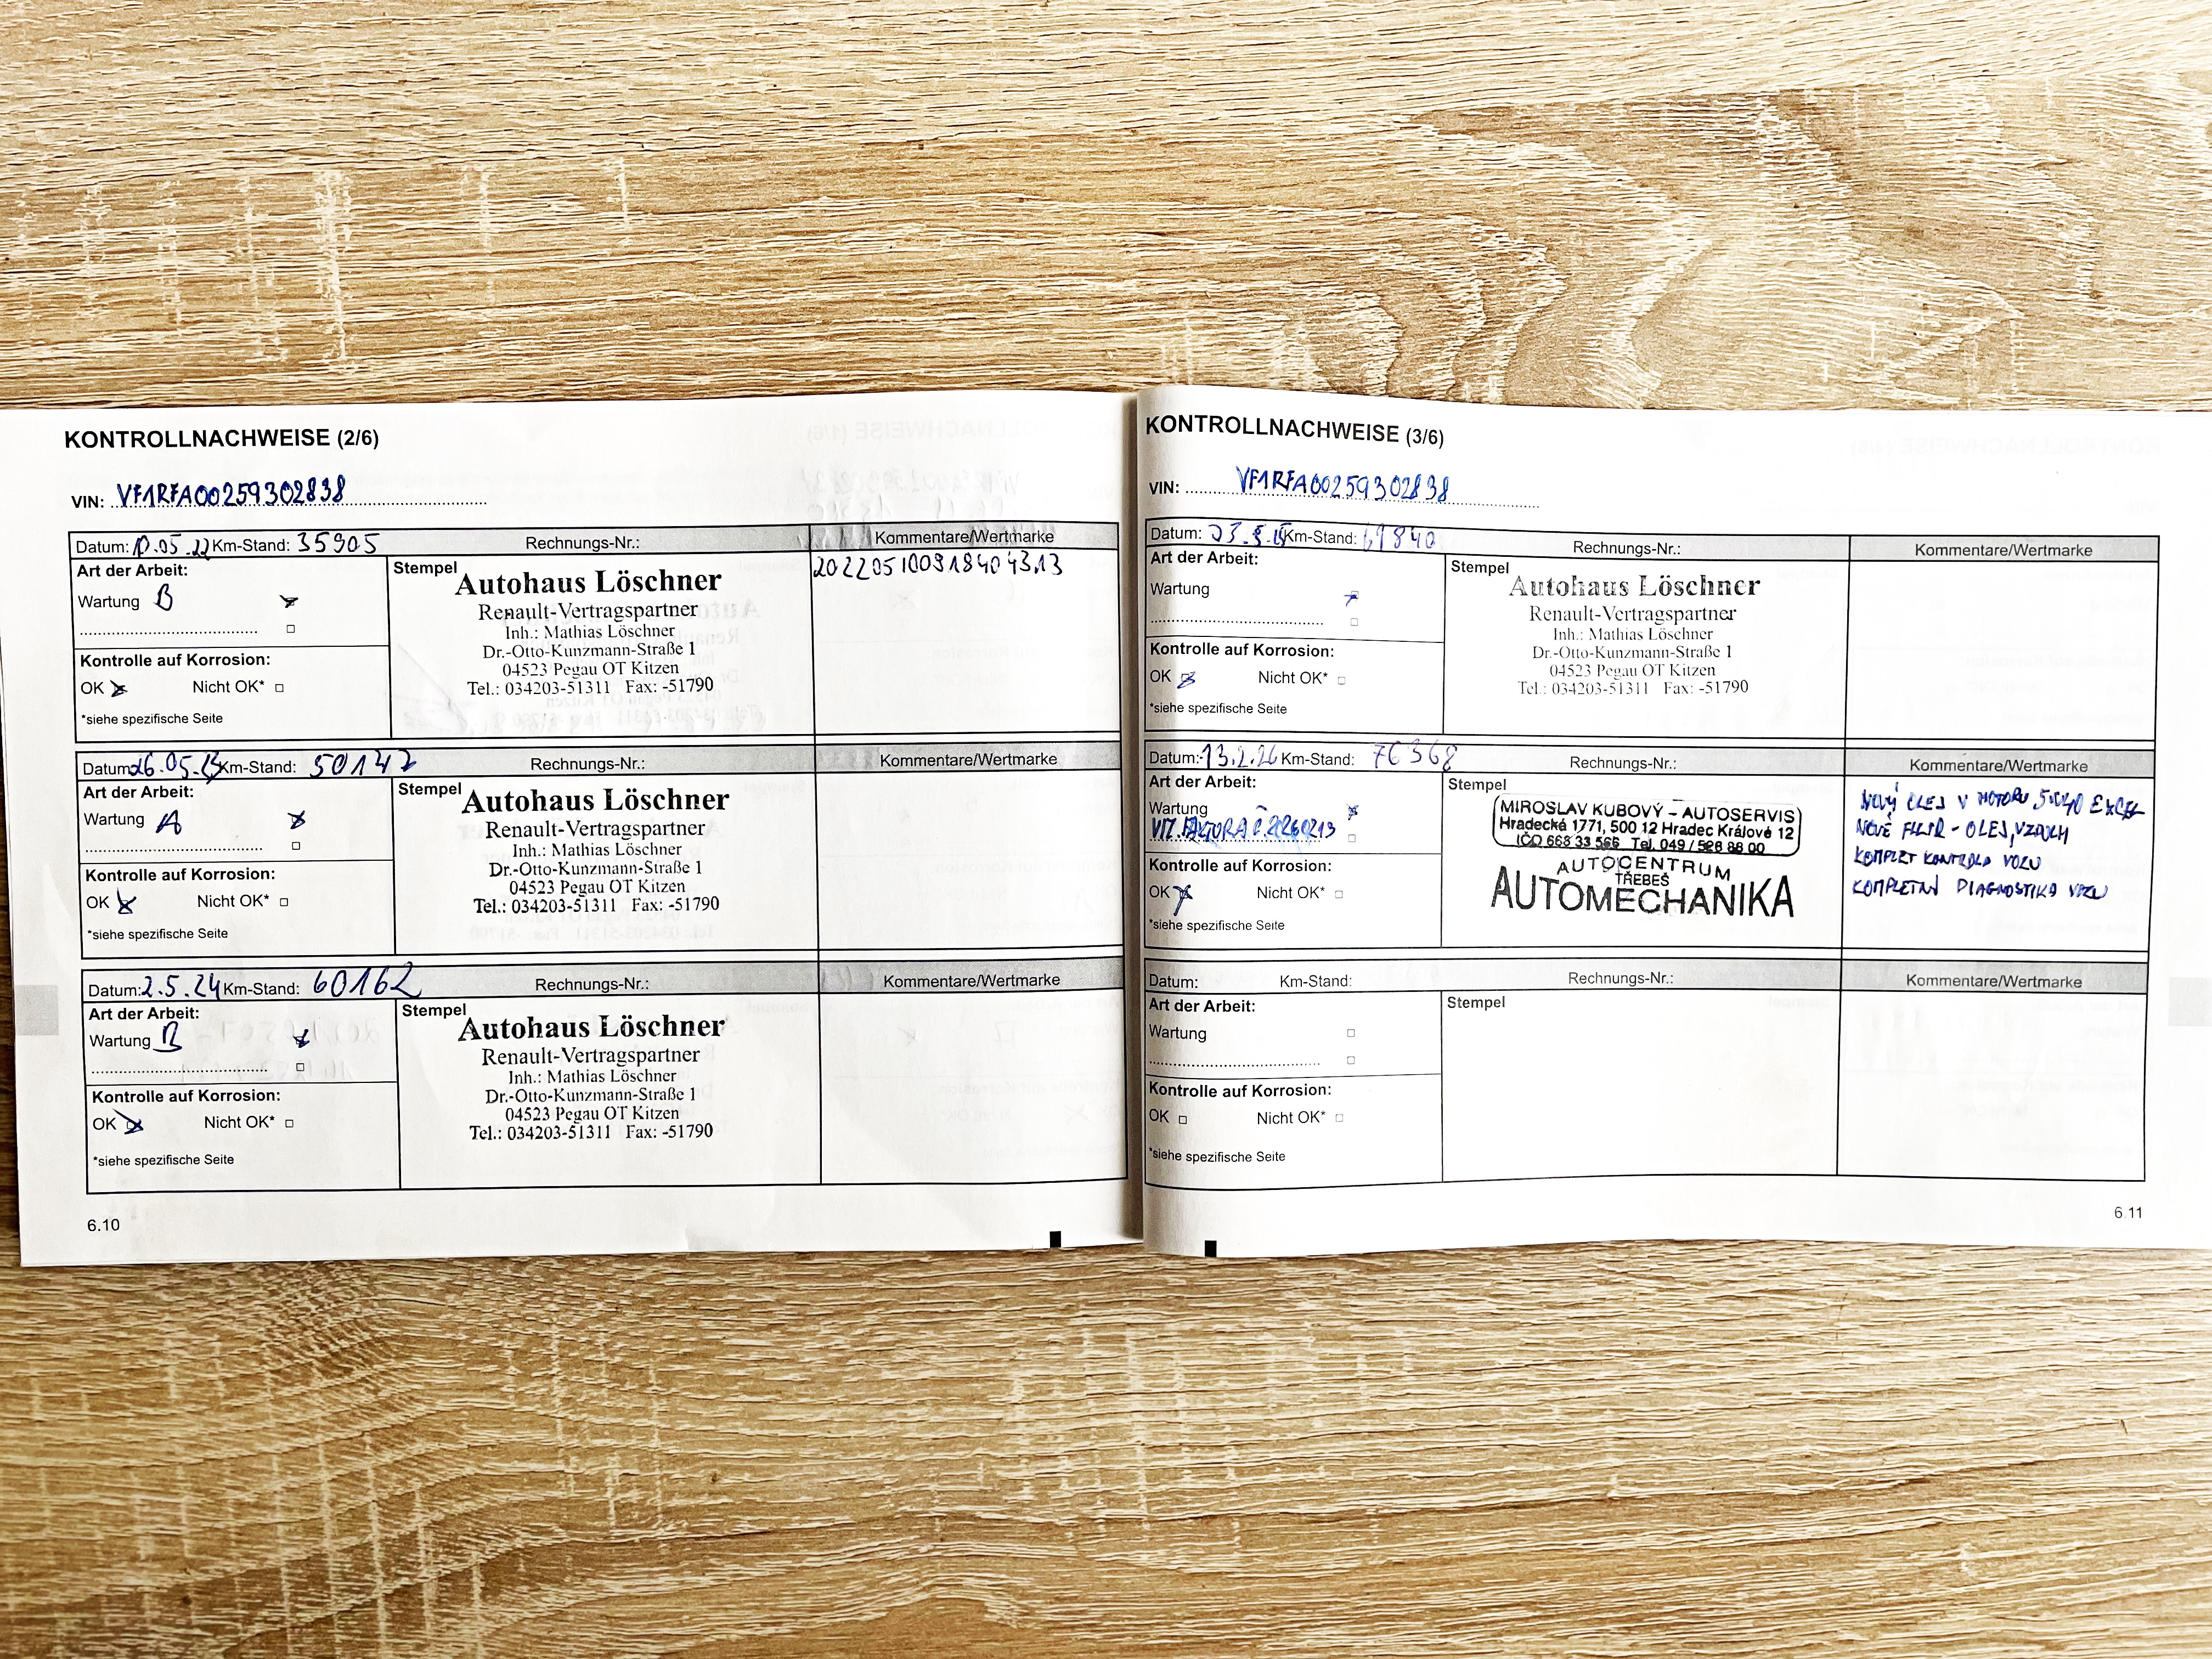 KONTROLLNACHWEISE (2/6)
VIN: VF1RFA00259302838
Datum: 10.05.22 Km-Stand: 35905 Rechnungs-Nr.: Kommentare/Wertmarke
Art der Arbeit:
Wartung B
Kontrolle auf Korrosion:
OK Nicht OK*
*siehe spezifische Seite
Stempel
Autohaus Löschner
Renault-Vertragspartner
Inh.: Mathias Löschner
Dr.-Otto-Kunzmann-Straße 1
04523 Pegau OT Kitzen
Tel.: 034203-51311 Fax: -51790
2022051009184043.13
Datum: 26.05.23 Km-Stand: 50147 Rechnungs-Nr.: Kommentare/Wertmarke
Art der Arbeit:
Wartung A
Kontrolle auf Korrosion:
OK Nicht OK*
*siehe spezifische Seite
Stempel
Autohaus Löschner
Renault-Vertragspartner
Inh.: Mathias Löschner
Dr.-Otto-Kunzmann-Straße 1
04523 Pegau OT Kitzen
Tel.: 034203-51311 Fax: -51790
Datum: 2.5.24 Km-Stand: 60162 Rechnungs-Nr.: Kommentare/Wertmarke
Art der Arbeit:
Wartung B
Kontrolle auf Korrosion:
OK Nicht OK*
*siehe spezifische Seite
Stempel
Autohaus Löschner
Renault-Vertragspartner
Inh.: Mathias Löschner
Dr.-Otto-Kunzmann-Straße 1
04523 Pegau OT Kitzen
Tel.: 034203-51311 Fax: -51790
6.10
KONTROLLNACHWEISE (3/6)
VIN: VF1RFA00259302838
Datum: Km-Stand: 69840 Rechnungs-Nr.: Kommentare/Wertmarke
Art der Arbeit:
Wartung
Kontrolle auf Korrosion:
OK Nicht OK*
*siehe spezifische Seite
Stempel
Autohaus Löschner
Renault-Vertragspartner
Inh.: Mathias Löschner
Dr.-Otto-Kunzmann-Straße 1
04523 Pegau OT Kitzen
Tel.: 034203-51311 Fax: -51790
Datum: 13.2.26 Km-Stand: 70368 Rechnungs-Nr.: Kommentare/Wertmarke
Art der Arbeit:
Wartung
VIZ. FAKTURA Č. 20260213
Kontrolle auf Korrosion:
OK Nicht OK*
*siehe spezifische Seite
Stempel
MIROSLAV KUBOVÝ - AUTOSERVIS
Hradecká 1771, 500 12 Hradec Králové 12
IČO 668 33 566 Tel. 049 / 526 88 00
AUTOCENTRUM
TŘEBEŠ
AUTOMECHANIKA
NOVÝ OLEJ V MOTORU 5W40 EXCEL
NOVÉ FILTR - OLEJ, VZDUCH
KOMPLET KONTROLA VOZU
KOMPLETNÍ DIAGNOSTIKA VOZU
Datum: Km-Stand: Rechnungs-Nr.: Kommentare/Wertmarke
Art der Arbeit:
Wartung
Kontrolle auf Korrosion:
OK Nicht OK*
*siehe spezifische Seite
Stempel
6.11